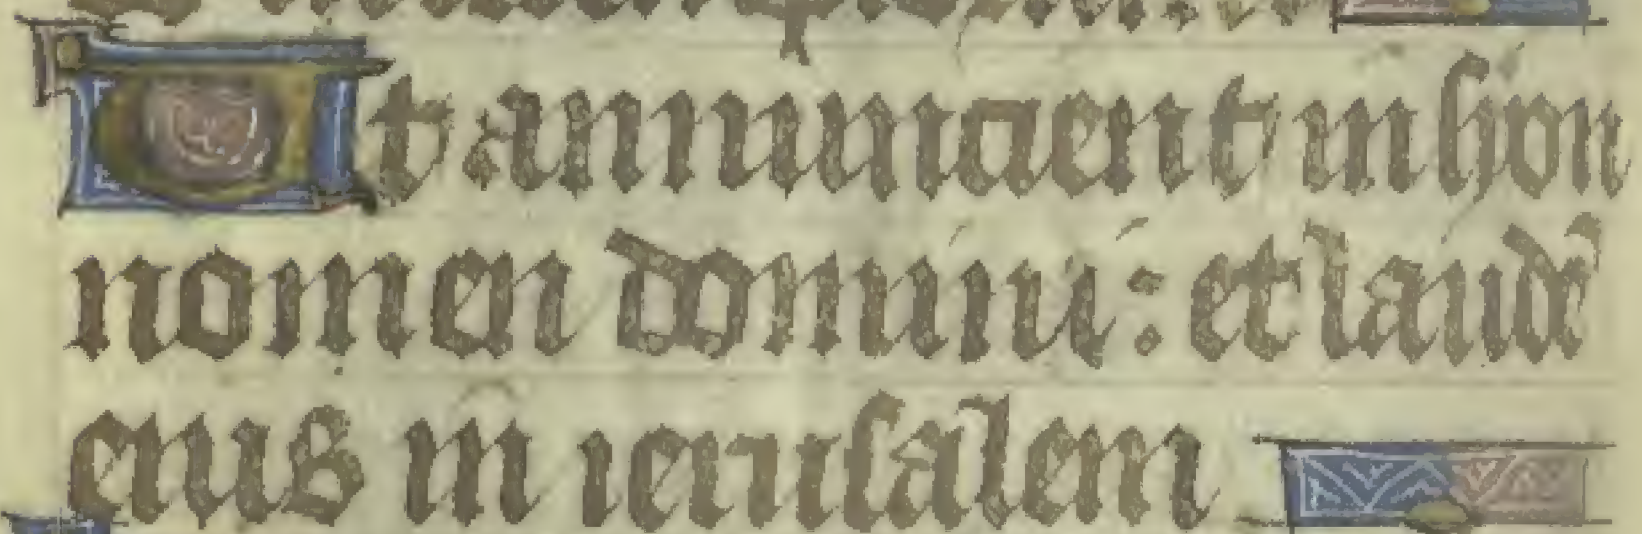 Ut annuncient in syon
nomen domini: et laudē
eius in ierusalem